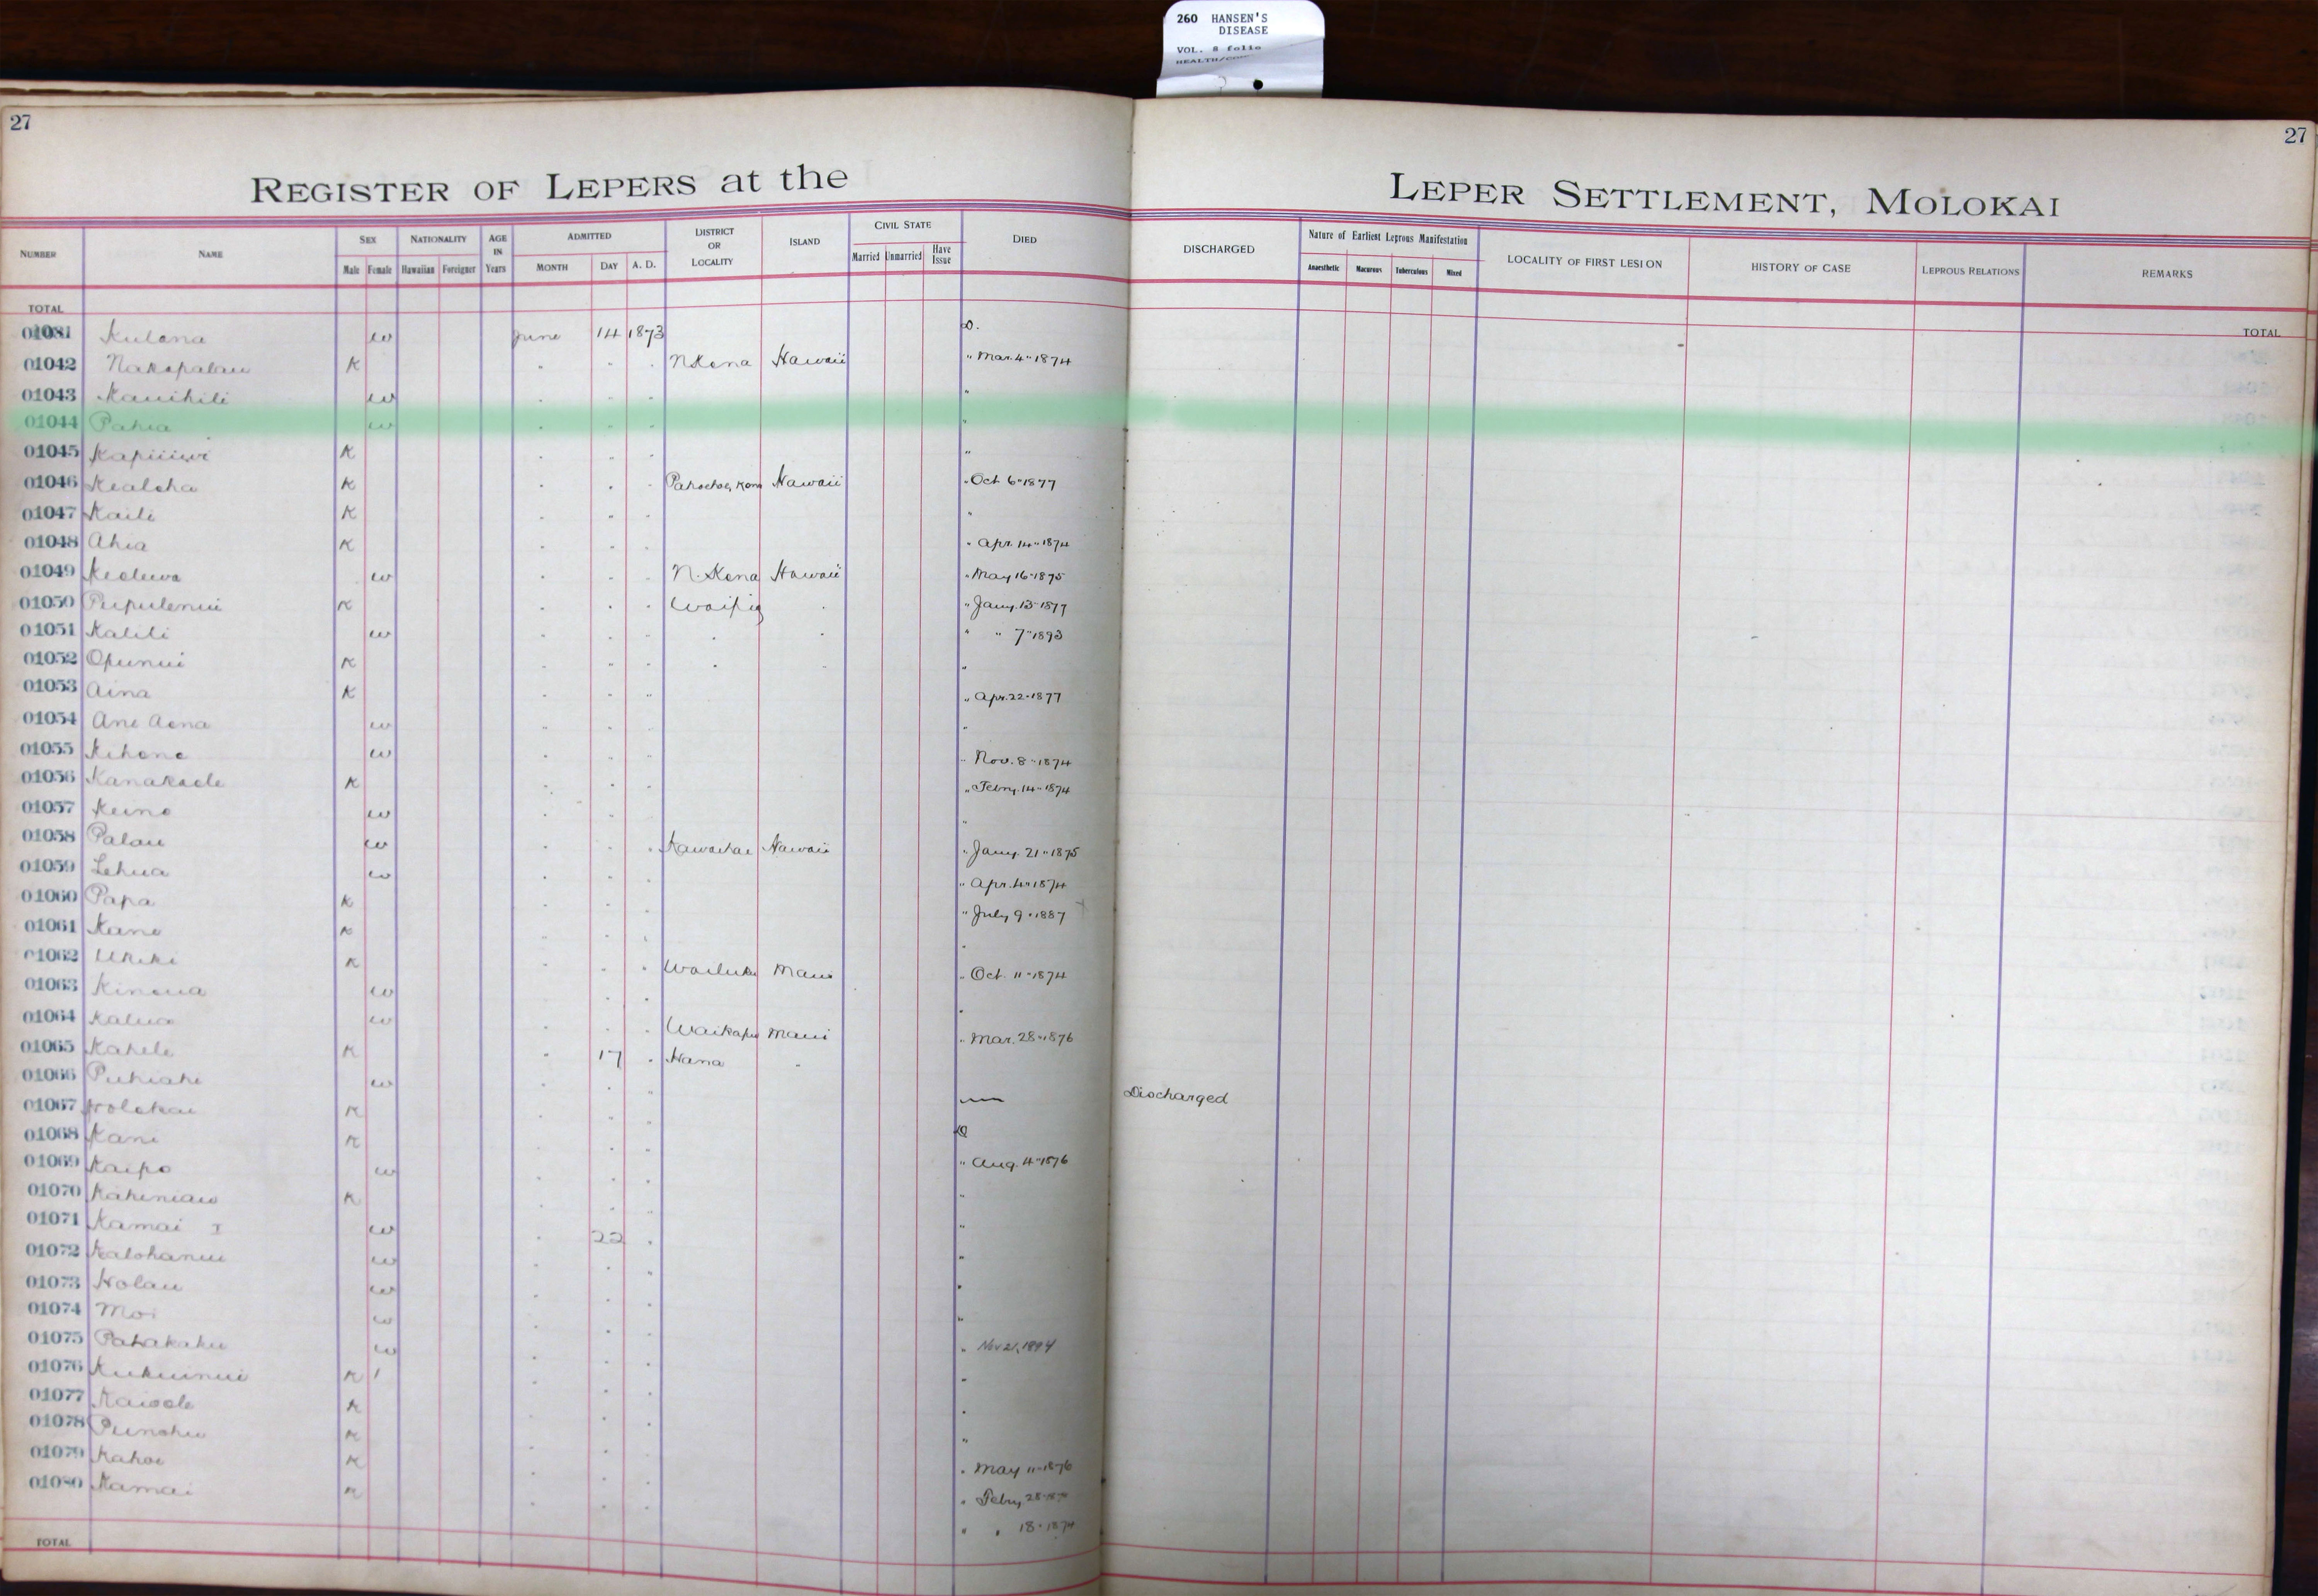 260 HANSEN'S
DISEASE
VOL. 8 folio
27
27
REGISTER OF LEPERS at the LEPER SETTLEMENT, MOLOKAI
NUMBER NAME SEX NATIONALITY AGE IN Years ADMITTED DISTRICT OR LOCALITY ISLAND CIVIL STATE DIED DISCHARGED Nature of Earliest Leprous Manifestation LOCALITY OF FIRST LESION HISTORY OF CASE LEPROUS RELATIONS REMARKS
Male Female Hawaiian Foreigner MONTH DAY A. D. Married Unmarried Have Issue Anaesthetic Macurous Tuberculous Mixed
TOTAL TOTAL
Kulana w June 14 1873 D.
01042 Nakapalau K " " " N Kona Hawaii " Mar. 4" 1874
01043 Kauihili w " " " "
01044 Pahia w " " " "
01045 K " " " "
01046 Kealoha K " " " Hawaii " Oct 6" 1877
01047 Kaili K " " " "
01048 Ahia K " " " " Apr. 14" 1874
01049 w " " " N. Kona Hawaii " May 16" 1875
01050 Pupulenui K " " " Waipio " " Jany. 13" 1877
01051 Kalili w " " " " " " " 7" 1893
01052 Opunui K " " " " " "
01053 Aina K " " " " Apr. 22" 1877
01054 Ane Aona w " " " "
01055 Kihone w " " " " Nov. 8" 1874
01056 Kanakaole K " " " " Febry. 14" 1874
01057 Keino w " " " "
01058 Palau w " " " Kawaihae Hawaii " Jany. 21" 1875
01059 Lehua w " " " " Apr. 4" 1874
01060 Papa K " " " " July 9" 1887
01061 Kane K " " " "
01062 Ukeke K " " " Wailuku Maui " Oct. 11" 1874
01063 Kinoua w " " " "
01064 Kalua w " " " Waikapu Maui " Mar. 28" 1876
01065 Kahele K " 17 " Hana "
01066 Puhiahi w " " " — Discharged
01067 Holokai K " " " D
01068 Kani K " " " " Aug. 4" 1876
01069 Kaipo w " " " "
01070 Kaheniau K " " " "
01071 Kamai I w " 22 " "
01072 Kalohanui w " " " "
01073 Holau w " " " "
01074 Moi w " " " " Nov 21, 1894
01075 Pahakahu w " " " "
01076 Kukuinui K " " " "
01077 Kaiole K " " " "
01078 Punohu K " " " " May 11" 1876
01079 Kahoe K " " " " Febry 28"
01080 Kamai K " " " " " 18" 1874
TOTAL